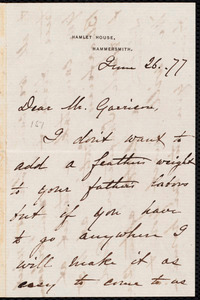 HAMLET HOUSE,
HAMMERSMITH.
June 26. 77
Dear Mr. Garrison,
I don't want to
add a feathers weight
to your fathers labors
but if you have
to go anywhere I
will make it as
easy to come to us